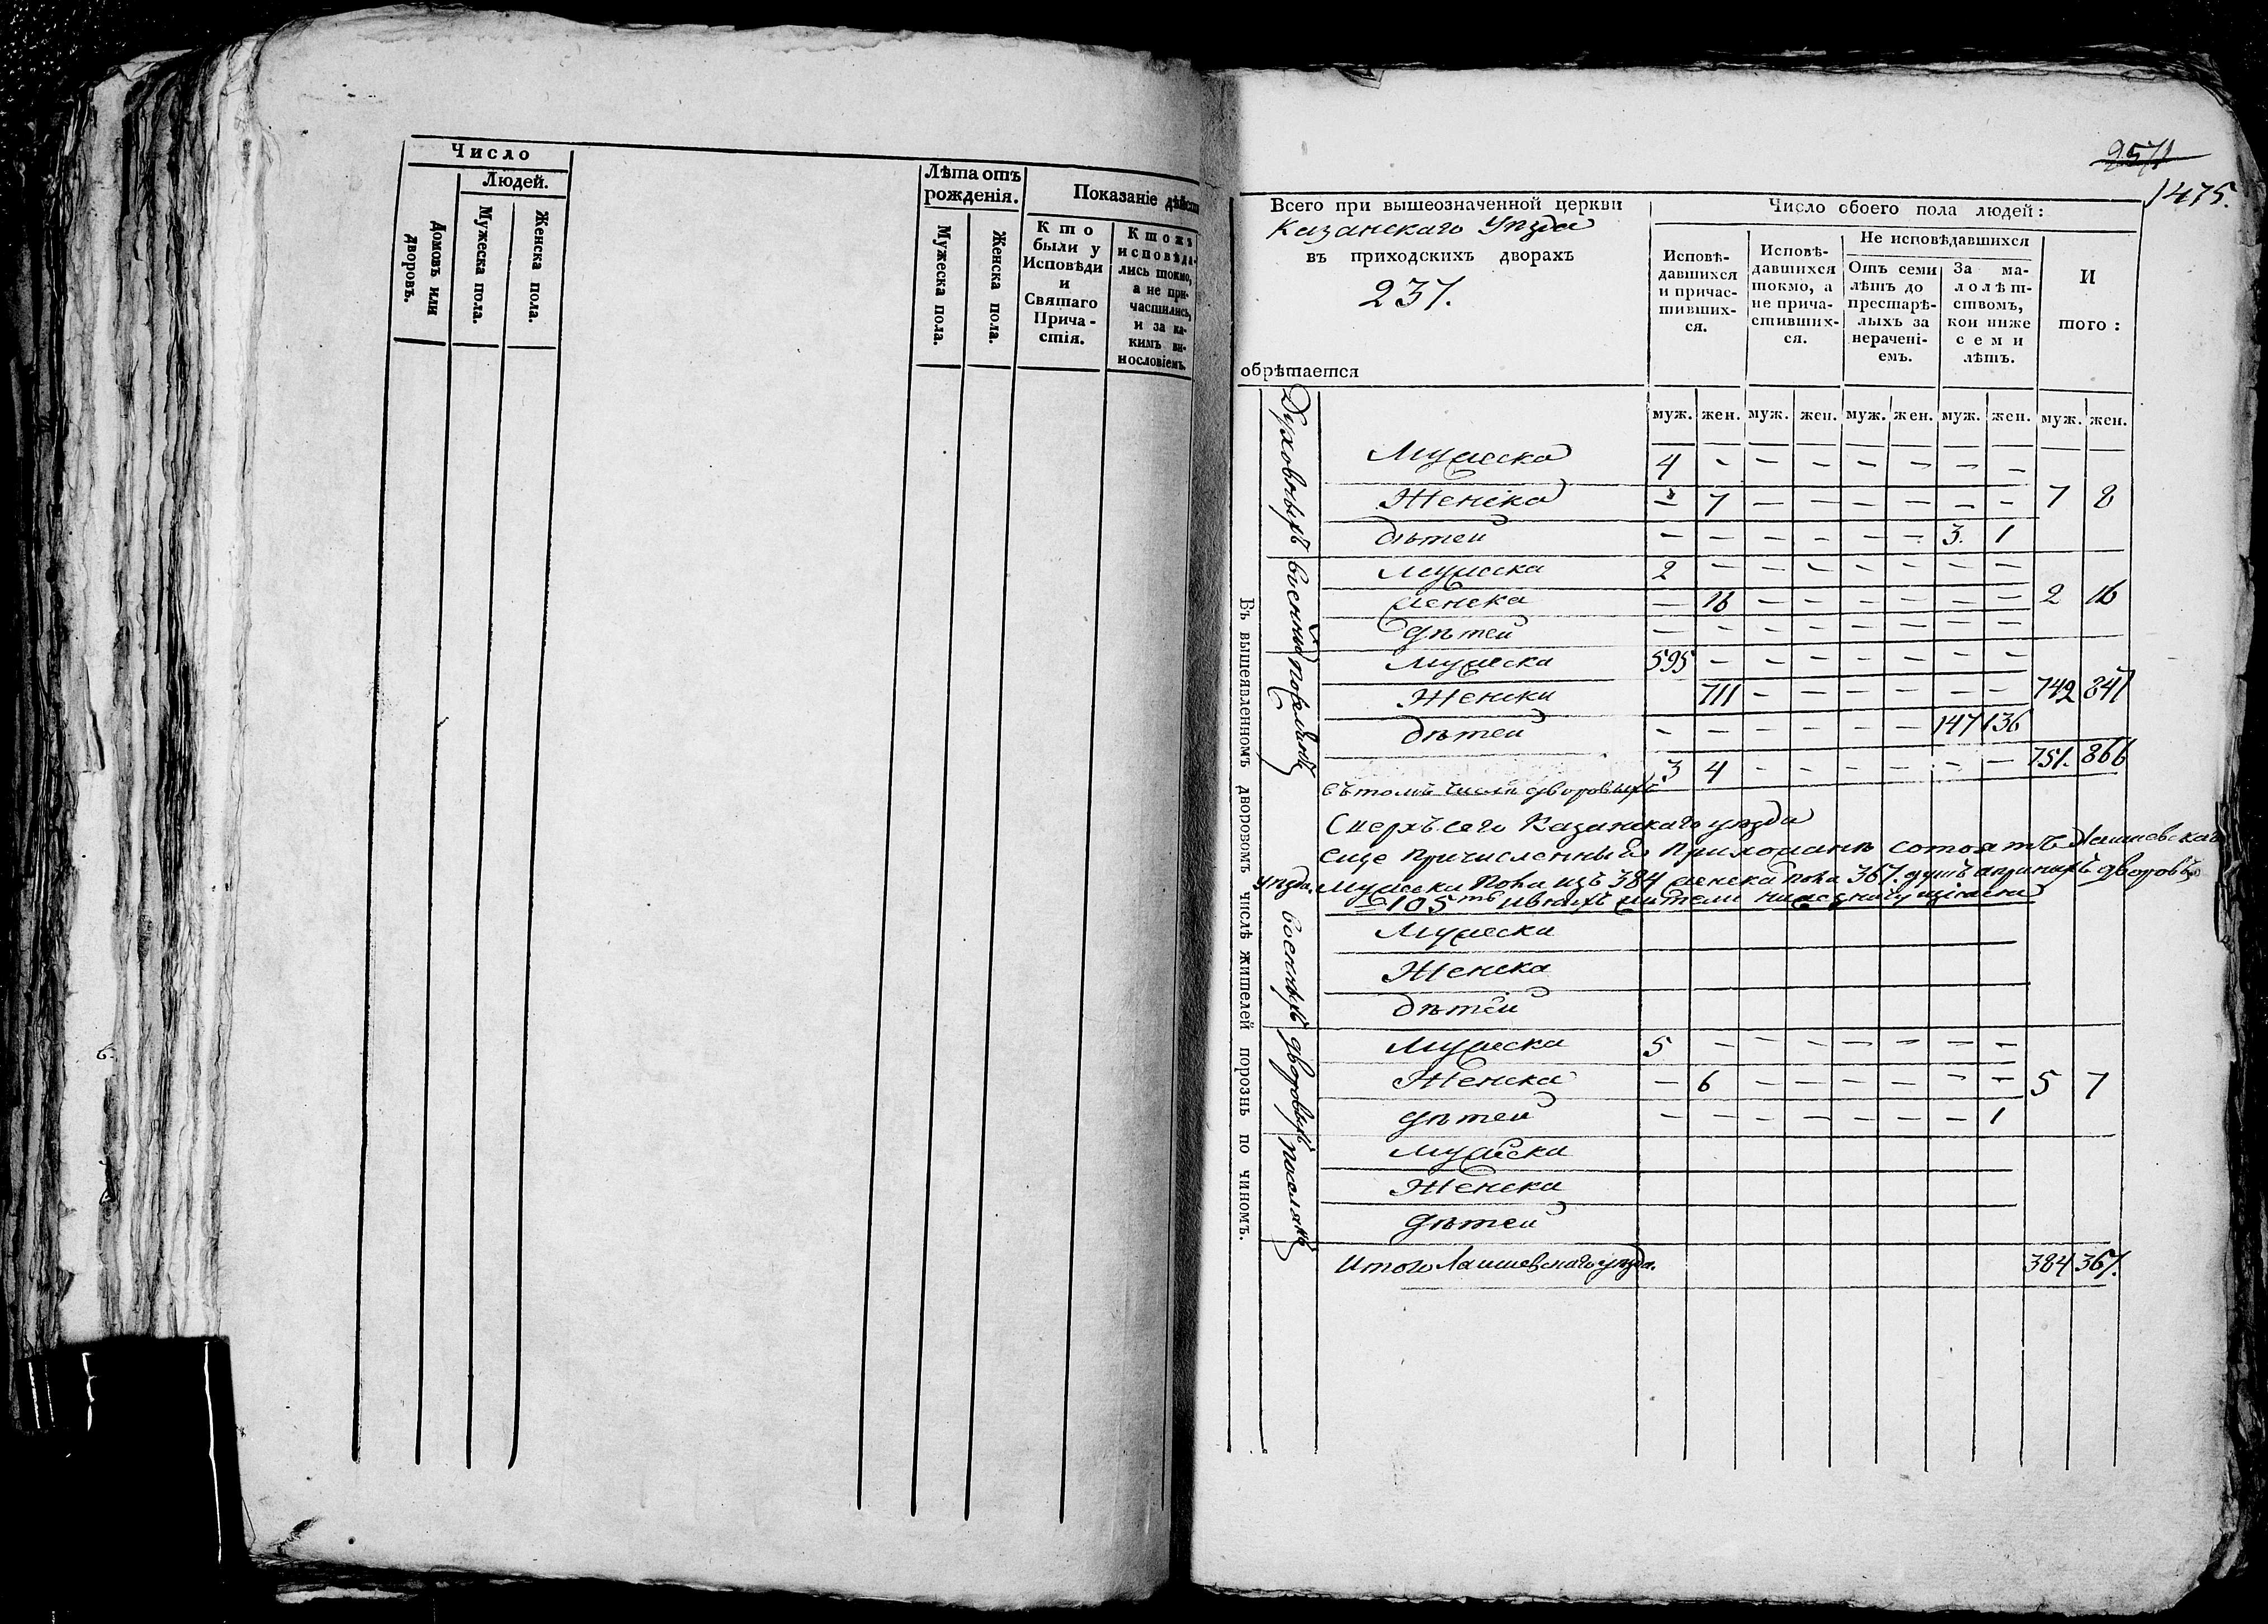 Число
Людей.
Домовъ или дворовъ.
Мужеска пола.
Женска пола.
Лѣта отъ рожденія.
Мужеска пола.
Женска пола.
Показаніе дѣйст
Кто
были у
Исповѣди
и
Святаго
Прича-
стія.
Ктожъ
исповѣда-
лись токмо,
а не при-
частились,
и за ка-
кимъ ви-
нословіемъ.
1475.
Всего при вышеозначенной церкви
Казанскаго Уѣзда
въ приходскихъ дворахъ
237.
обрѣтается
Число обоего пола людей:
Исповѣ-
давшихся
и причас-
тивших-
ся.
Исповѣ-
давшихся
токмо, а
не прича-
стивших-
ся.
Не исповѣдавшихся
Отъ семи
лѣтъ до
престарѣ-
лыхъ за
нерачені-
емъ.
За ма-
лолѣт-
ствомъ,
кои ниже
семи
лѣтъ.
И
того:
муж. жен. муж. жен. муж. жен. муж. жен. муж. жен.
Въ вышеявленномъ дворовомъ числѣ жителей порознь по чиномъ.
Духовныхъ
Мужеска 4 – – – – – – –
Женска – 7 – – – – – – 7 8
дѣтей – – – – – – 3. 1
военныхъ
Мужеска 2 – – – – – – –
женска – 16 – – – – – – 2 16
дѣтей – – – – – – – –
поселянъ
Мужеска 595 – – – – – – –
Женски 711 – – – – – – 742 847
дѣтей – – – – – – 147 136
въ томъ числѣ дворовыхъ 3 4 – – – – – – 751. 866
Сверхъ сего Казанскаго уѣзда
еще причисленныя прихожане состоятъ Лаишевскаго
уѣзда. Мужеска пола изъ 384 женска пола 367. душъ
105
военныхъ
Мужеска
Женска
дѣтей
дворовыхъ
Мужеска 5 – – – – – – –
Женска – 6 – – – – – – 5 7
дѣтей – – – – – – – 1
поселянъ
Мужеска
Женска
дѣтей
Итого Лаишевскаго уѣзда. 384 367.